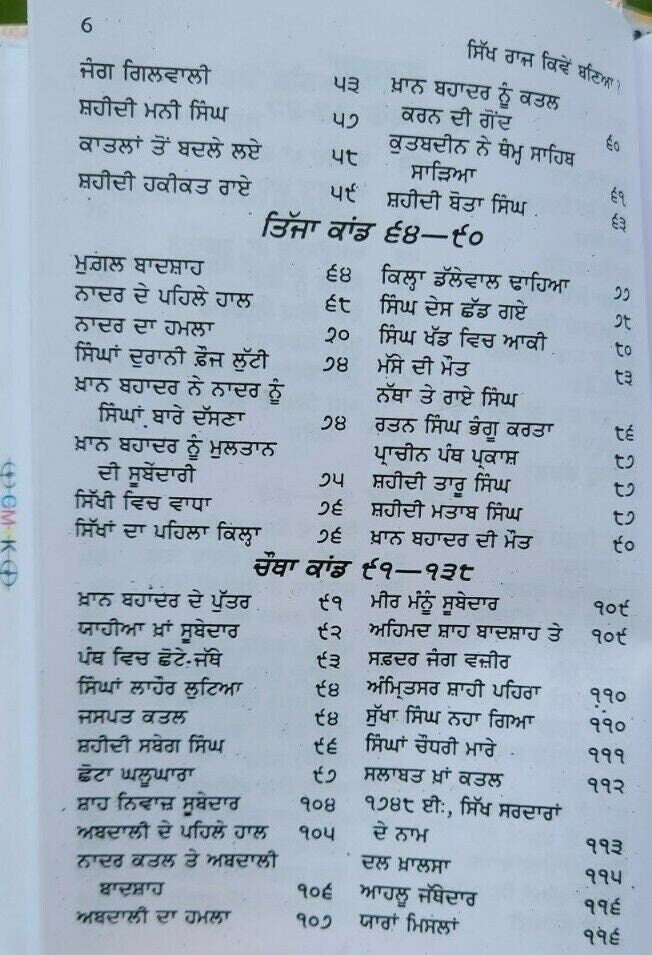 6
ਸਿੱਖ ਰਾਜ ਕਿਵੇਂ ਬਣਿਆ?
ਜੰਗ ਗਿਲਵਾਲੀ ੫੩
ਸ਼ਹੀਦੀ ਮਨੀ ਸਿੰਘ ੫੭
ਕਾਤਲਾਂ ਤੋਂ ਬਦਲੇ ਲਏ ੫੮
ਸ਼ਹੀਦੀ ਹਕੀਕਤ ਰਾਏ ੫੯
ਖ਼ਾਨ ਬਹਾਦਰ ਨੂੰ ਕਤਲ
ਕਰਨ ਦੀ ਗੋਂਦ ੬੦
ਕੁਤਬਦੀਨ ਨੇ ਥੰਮ੍ਹ ਸਾਹਿਬ
ਸਾੜਿਆ ੬੧
ਸ਼ਹੀਦੀ ਬੋਤਾ ਸਿੰਘ ੬੩
ਤਿੱਜਾ ਕਾਂਡ ੬੪—੯੦
ਮੁਗ਼ਲ ਬਾਦਸ਼ਾਹ ੬੪
ਨਾਦਰ ਦੇ ਪਹਿਲੇ ਹਾਲ ੬੮
ਨਾਦਰ ਦਾ ਹਮਲਾ ੭੦
ਸਿੰਘਾਂ ਦੁਰਾਨੀ ਫ਼ੌਜ ਲੁੱਟੀ ੭੪
ਖ਼ਾਨ ਬਹਾਦਰ ਨੇ ਨਾਦਰ ਨੂੰ
ਸਿੰਘਾਂ ਬਾਰੇ ਦੱਸਣਾ ੭੪
ਖ਼ਾਨ ਬਹਾਦਰ ਨੂੰ ਮੁਲਤਾਨ
ਦੀ ਸੂਬੇਦਾਰੀ ੭੫
ਸਿੱਖੀ ਵਿਚ ਵਾਧਾ ੭੬
ਸਿੱਖਾਂ ਦਾ ਪਹਿਲਾ ਕਿਲ੍ਹਾ ੭੬
ਕਿਲ੍ਹਾ ਡੱਲੇਵਾਲ ਢਾਹਿਆ ੭੭
ਸਿੰਘ ਦੇਸ ਛੱਡ ਗਏ ੭੮
ਸਿੰਘ ਖੱਡ ਵਿਚ ਆਕੀ ੮੦
ਮੱਸੇ ਦੀ ਮੌਤ ੮੩
ਨੱਥਾ ਤੇ ਰਾਏ ਸਿੰਘ
ਰਤਨ ਸਿੰਘ ਭੰਗੂ ਕਰਤਾ ੮੬
ਪ੍ਰਾਚੀਨ ਪੰਥ ਪ੍ਰਕਾਸ਼ ੮੭
ਸ਼ਹੀਦੀ ਤਾਰੂ ਸਿੰਘ ੮੭
ਸ਼ਹੀਦੀ ਮਤਾਬ ਸਿੰਘ ੮੭
ਖ਼ਾਨ ਬਹਾਦਰ ਦੀ ਮੌਤ ੯੦
ਚੌਥਾ ਕਾਂਡ ੯੧—੧੩੮
ਖ਼ਾਨ ਬਹਾਦਰ ਦੇ ਪੁੱਤਰ ੯੧
ਯਾਹੀਆ ਖ਼ਾਂ ਸੂਬੇਦਾਰ ੯੨
ਪੰਥ ਵਿਚ ਛੋਟੇ-ਜੱਥੇ ੯੩
ਸਿੰਘਾਂ ਲਾਹੌਰ ਲੁਟਿਆ ੯੪
ਜਸਪਤ ਕਤਲ ੯੪
ਸ਼ਹੀਦੀ ਸਬੇਗ ਸਿੰਘ ੯੬
ਛੋਟਾ ਘਲੂਘਾਰਾ ੯੭
ਸ਼ਾਹ ਨਿਵਾਜ਼ ਸੂਬੇਦਾਰ ੧੦੪
ਅਬਦਾਲੀ ਦੇ ਪਹਿਲੇ ਹਾਲ ੧੦੫
ਨਾਦਰ ਕਤਲ ਤੇ ਅਬਦਾਲੀ
ਬਾਦਸ਼ਾਹ ੧੦੬
ਅਬਦਾਲੀ ਦਾ ਹਮਲਾ ੧੦੭
ਮੀਰ ਮੰਨੂੰ ਸੂਬੇਦਾਰ ੧੦੯
ਅਹਿਮਦ ਸ਼ਾਹ ਬਾਦਸ਼ਾਹ ਤੇ ੧੦੯
ਸਫ਼ਦਰ ਜੰਗ ਵਜ਼ੀਰ
ਅੰਮ੍ਰਿਤਸਰ ਸ਼ਾਹੀ ਪਹਿਰਾ ੧੧੦
ਸੁੱਖਾ ਸਿੰਘ ਨਹਾ ਗਿਆ ੧੧੦
ਸਿੰਘਾਂ ਚੌਧਰੀ ਮਾਰੇ ੧੧੧
ਸਲਾਬਤ ਖ਼ਾਂ ਕਤਲ ੧੧੨
੧੭੪੮ ਈ:, ਸਿੱਖ ਸਰਦਾਰਾਂ
ਦੇ ਨਾਮ ੧੧੩
ਦਲ ਖ਼ਾਲਸਾ ੧੧੫
ਆਹਲੂ ਜੱਥੇਦਾਰ ੧੧੬
ਯਾਰਾਂ ਮਿਸਲਾਂ ੧੧੬
CM K